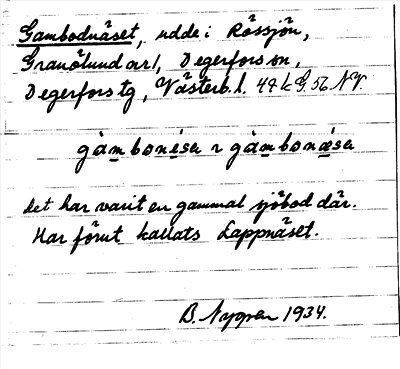 Gambodnäset, udde i Rössjön,
Granölund ar1, Degerfors sn,
Degerfors tg, Västerb.l.
gàmbonésa r gàmbonæsa
det har varit en gammal sjöbod där.
Har förut kallats Lappnäset.
B. Nygren 1934.